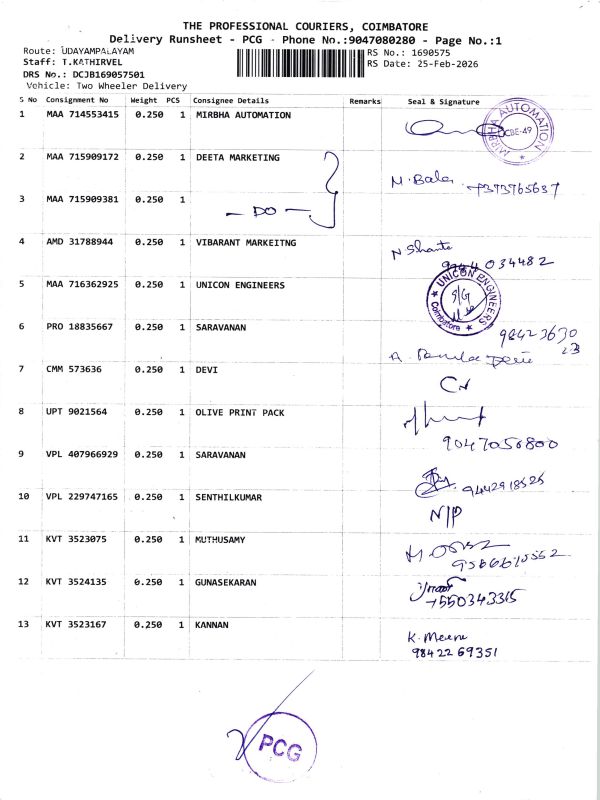 THE PROFESSIONAL COURIERS, COIMBATORE
Delivery Runsheet - PCG - Phone No.:9047080280 - Page No.:1
Route: UDAYAMPALAYAM
RS No.: 1690575
Staff: T.KATHIRVEL
RS Date: 25-Feb-2026
DRS No.: DCJB169057501
Vehicle: Two Wheeler Delivery
S No Consignment No Weight PCS Consignee Details Remarks Seal & Signature
1 MAA 714553415 0.250 1 MIRBHA AUTOMATION
MIRBHA AUTOMATION CBE-49
2 MAA 715909172 0.250 1 DEETA MARKETING
M. Bala
3 MAA 715909381 0.250 1
— DO —
4 AMD 31788944 0.250 1 VIBARANT MARKEITNG
N Shante
9944034482
5 MAA 716362925 0.250 1 UNICON ENGINEERS
UNICON ENGINEERS Coimbatore
6 PRO 18835667 0.250 1 SARAVANAN
98423630
23
7 CMM 573636 0.250 1 DEVI
8 UPT 9021564 0.250 1 OLIVE PRINT PACK
9047050800
9 VPL 407966929 0.250 1 SARAVANAN
9442918525
10 VPL 229747165 0.250 1 SENTHILKUMAR
N/P
11 KVT 3523075 0.250 1 MUTHUSAMY
12 KVT 3524135 0.250 1 GUNASEKARAN
13 KVT 3523167 0.250 1 KANNAN
K. Meena
9842269351
PCG